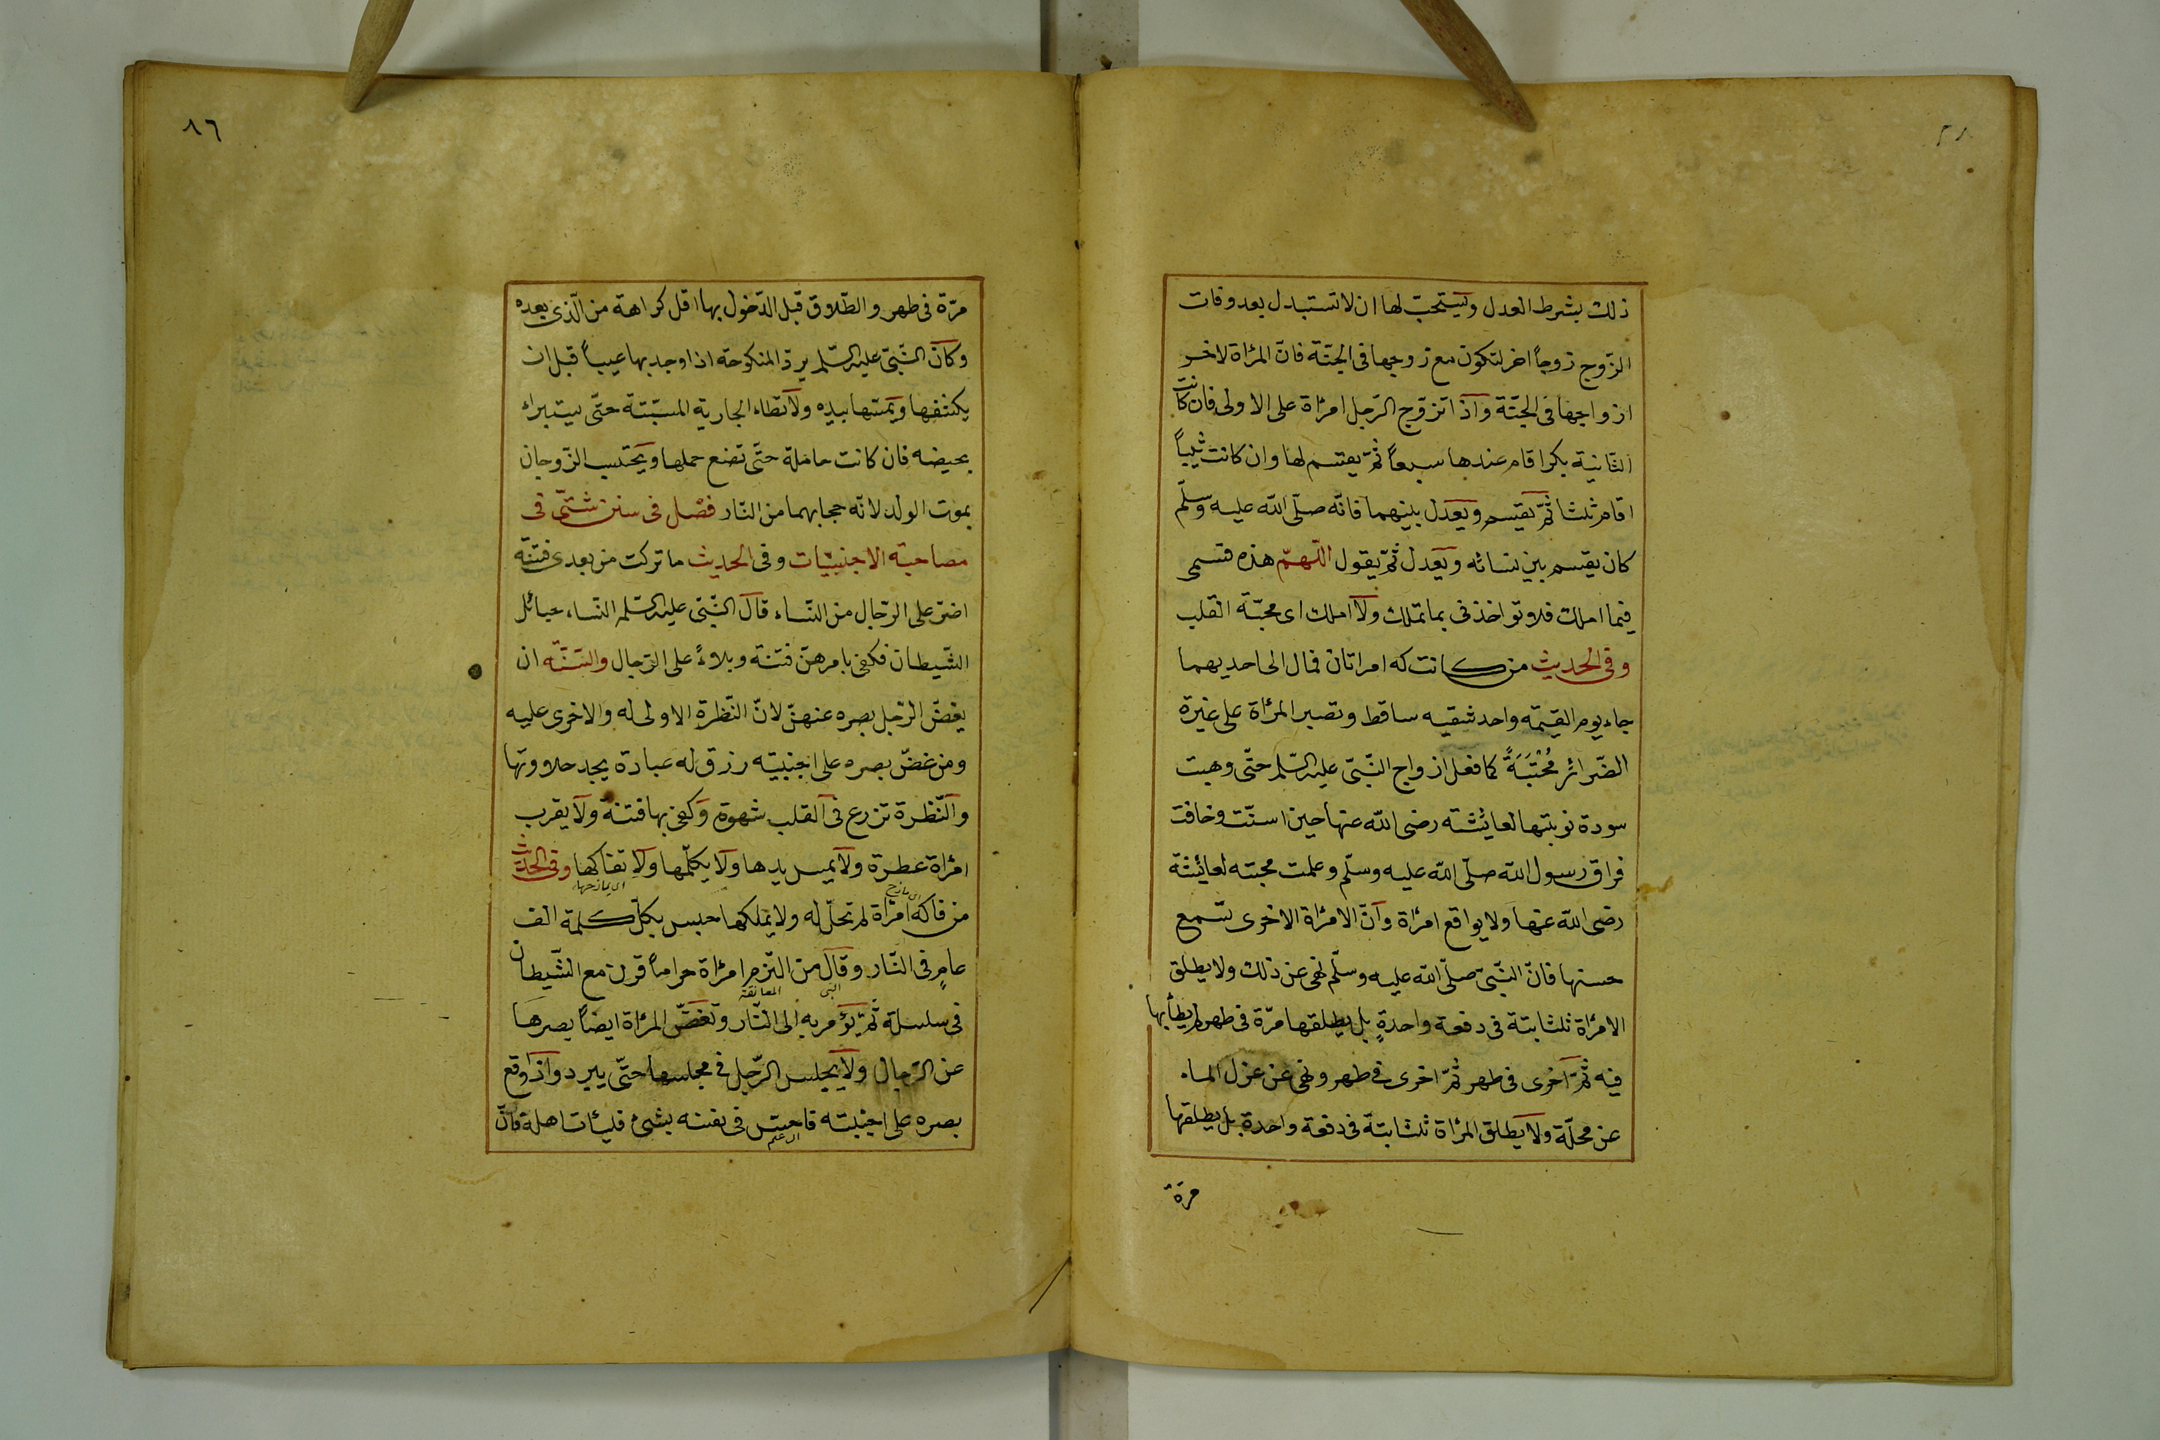 ذلك بشرط العدل ويستحبّ لها ان لا تستبدل بعد وفات
الزّوج زوجاً اخر لتكون مع زوجها فى الجنّة فانّ المرأة لاخر
ازواجها فى الجنّة واذا تزوّج الرّجل امرأة على الاولى فان كانت
الثّانية بكرا اقام عندها سبعاً ثمّ يقسم لها وان كانت ثيّباً
اقام ثلثا ثمّ يقسم ويعدل بينهما فانّه صلّى اللّه عليه وسلّم
كان يقسم بين نسائه ويعدل ثمّ يقول اللّهمّ هذه قسمى
فيما املك فلا تواخذنى بما تملك ولا املك اى محبّة القلب
وفى الحديث من كانت له امراتان فمال الى احديهما
جاء يوم القيمة واحد شقيه ساقط وتصبر المرأة على غيرة
الضّرائر مُحْتَبَةً كما فعل ازواج النّبىّ عليه السّلم حتّى وهبت
سودة نوبتها لعائشة رضى اللّه عنها حين اسنّت وخافت
فراق رسول اللّه صلّى اللّه عليه وسلّم وعلمت محبته لعائشة
رضى اللّه عنها ولا يواقع امرأة وانّ الامرأة الاخرى تسمع
حسنها فانّ النّبىّ صلّى اللّه عليه وسلّم نهى عن ذلك ولا يطلق
الامرأة ثلثا بتة فى دفعة واحدةٍ بل يطلقها مرّة فى طهر لم يطأ بها
فيه ثمّ اخرى فى طهر ثمّ اخرى فى طهر ونهى عن عزل الماء
عن محلّة ولا يطلق المرأة ثلثا بتة فى دفعة واحدة بل يطلقها
مرة
٨٦
مرّة فى طهر والطّلاق قبل الدّخول بها اقل كراهة من الّذى بعده
وكان النّبىّ عليه السّلم يردّ المنكوحة اذا وجد بها عيباً قبل ان
يكشفها ويمسّها بيده ولا تطاء الجارية المسبّية حتّى يستبراء
بحيضه فان كانت حاملة حتّى تضع حملها ويحتسب الزّوجان
بموت الولد لانّه حجابهما من النّار فصْل فى سنن شتّى فى
مصاحبة الاجنبيّات وفى الحديث ما تركت من بعدى فتنة
اضرّ على الرّجال من النّساء قال النّبىّ عليه السّلم النّساء حبائل
الشّيطان فكفى بامرهنّ فتنة وبلاءً على الرّجال والسّنّة ان
يغضّ الرّجل بصره عنهنّ لانّ النّظرة الاولى له والاخرى عليه
ومن غضّ بصره على اجنبية رزق له عبادة يجد حلاوتها
والنّظرة تزرع فى القلب شهوة وكفى بها فتنة ولا يقرب
امرأة عطرة ولا يمس يدها ولا يكلّمها ولا تفاكها وفى الحديث
اى يمازحها
اى مازح
من فاكه امرأة لم تحلّ له ولا يملكها حبس بكلّ كلمة الف
عامٍ فى النّار وقال من التزم امرأة حراماً قرن مع الشّيطان
النبى المعانقة
فى سلسلة ثمّ يؤمر به الى النّار وتغضّ المرأة ايضاً بصرها
عن الرّجال ولا يجلس الرّجل فى مجلسها حتّى يبرد واذا وقع
بصره على اجنبيّة فاحسّ فى نفسه بشئ فليأت اهله فانّ